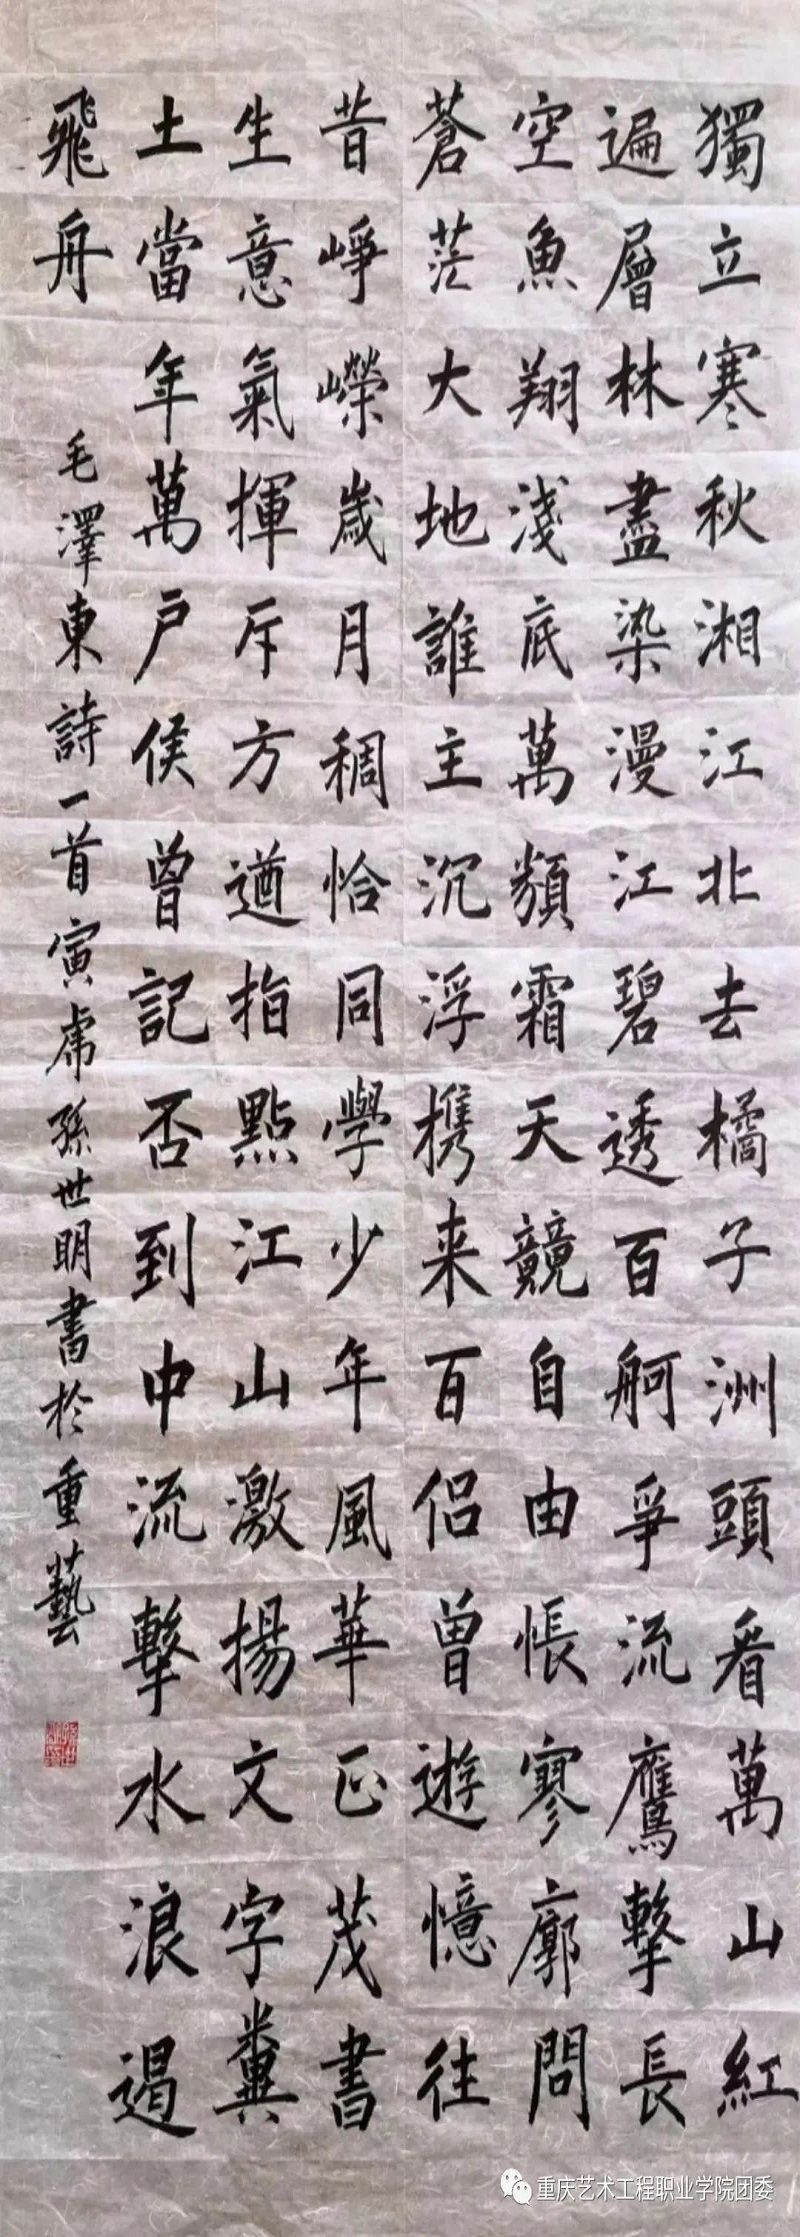 獨立寒秋湘江北去橘子洲頭看萬山紅
遍層林盡染漫江碧透百舸爭流鷹擊長
空魚翔淺底萬類霜天競自由悵寥廓問
蒼茫大地誰主沉浮携来百侣曾遊憶往
昔崢嶸歲月稠恰同學少年風華正茂書
生意氣揮斥方遒指點江山激揚文字糞
土當年萬户侯曾記否到中流擊水浪遏
飛舟
毛澤東詩一首寅虎孫世明書於重藝
重庆艺术工程职业学院团委